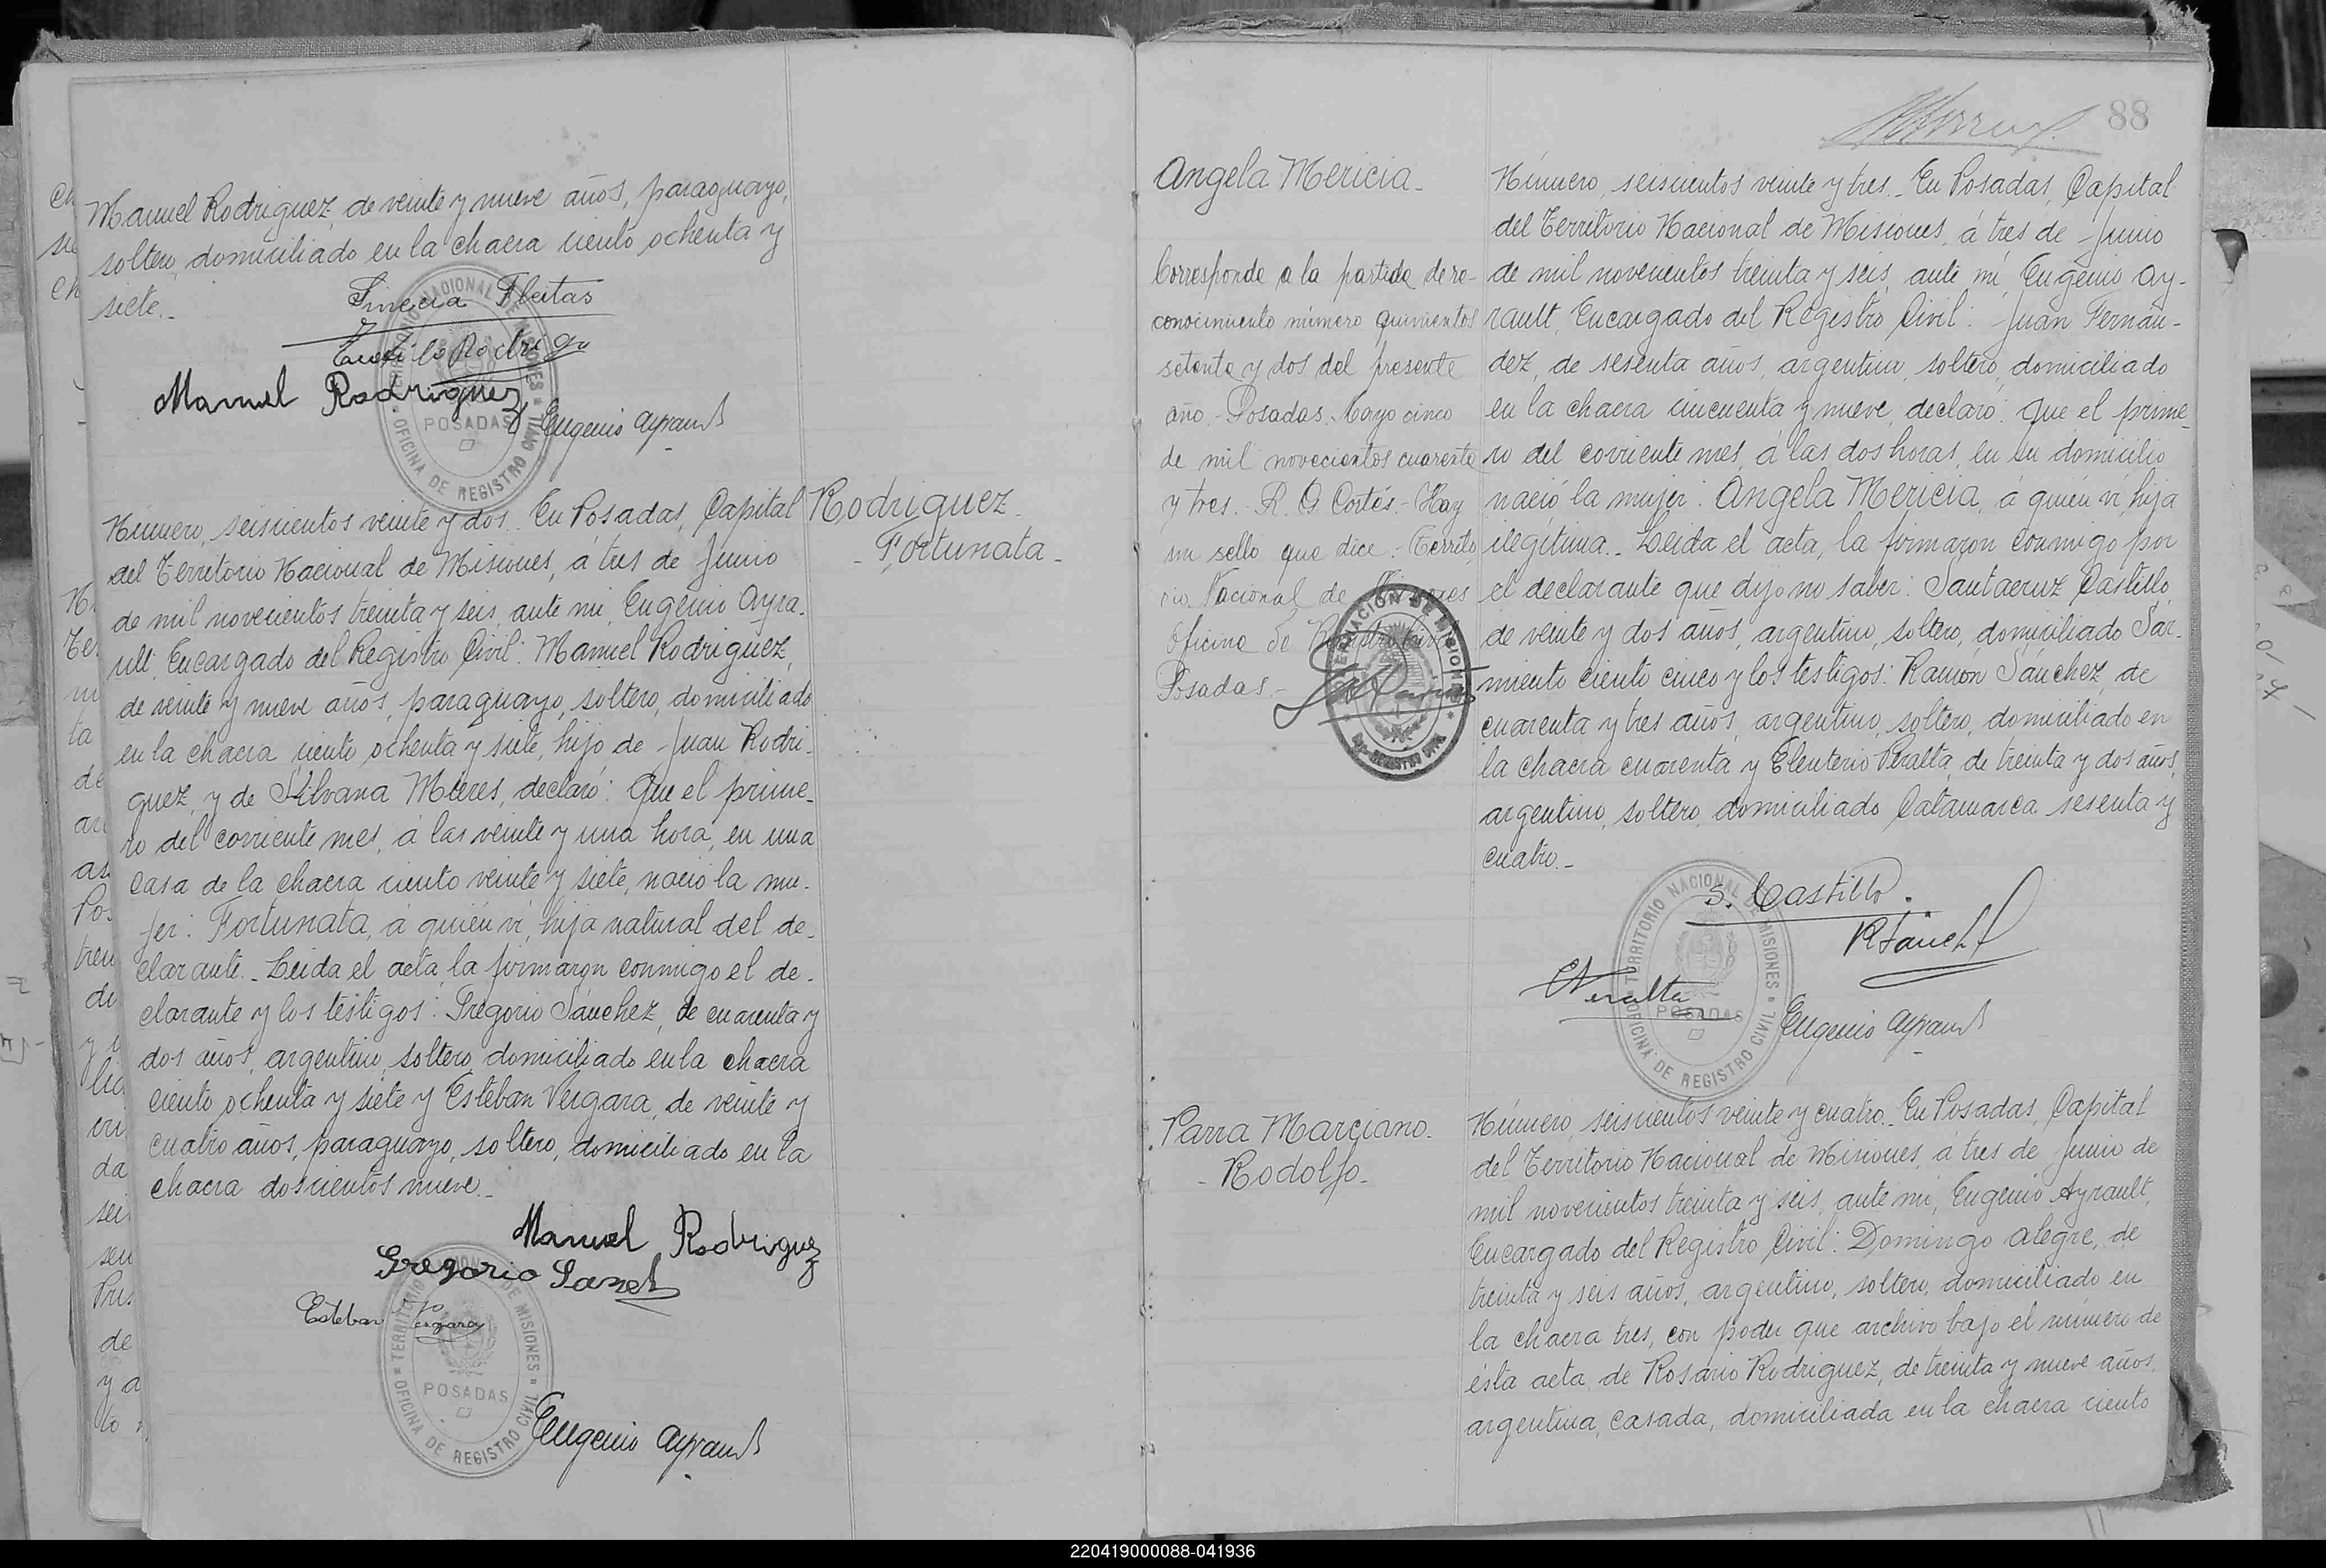 Manuel Rodriguez, de veinte y nueve años, paraguayo,
soltero, domiciliado en la chacra ciento ochenta y
siete._
Sinecia Fleitas
Manuel Rodriguez
Eugenio Ayrault
TERRITORIO NACIONAL DE MISIONES
OFICINA DE REGISTRO CIVIL
POSADAS
Rodriguez
- Fortunata -
Número, seiscientos veinte y dos._ En Posadas, Capital
del Territorio Nacional de Misiones, á tres de Junio
de mil novecientos treinta y seis, ante mi, Eugenio Ayra-
ult, Encargado del Registro Civil: Manuel Rodriguez,
de veinte y nueve años, paraguayo, soltero, domiciliado
en la chacra ciento ochenta y siete, hijo de Juan Rodri-
guez, y de Silvana Mieres, declaró: Que el prime-
ro del corriente mes, á las veinte y una hora, en una
casa de la chacra ciento veinte y siete, nació la mu-
jer: Fortunata, á quién ví, hija natural del de-
clarante._ Leida el acta, la firmaron conmigo el de-
clarante y los testigos: Gregorio Sánchez, de cuarenta y
dos años, argentino, soltero, domiciliado en la chacra
ciento ochenta y siete y Esteban Vergara, de veinte y
cuatro años, paraguayo, soltero, domiciliado en la
chacra doscientos nueve._
Manuel Rodriguez
Gregorio Sanch
Esteban Vergara
TERRITORIO NACIONAL DE MISIONES
OFICINA DE REGISTRO CIVIL
POSADAS
Eugenio Ayrault
88
Angela Mericia._
Corresponde a la partida de re-
conocimiento número quinientos
setenta y dos del presente
año.- Posadas. Mayo cinco
de mil novecientos cuarenta
y tres.- R. G. Cortés.- Hay
un sello que dice: Territo
rio Nacional de Misiones
Oficina de Registro Civil
Posadas.-
GOBERNACIÓN DE MISIONES
REGISTRO CIVIL
Número, seiscientos veinte y tres._ En Posadas, Capital
del Territorio Nacional de Misiones, á tres de Junio
de mil novecientos treinta y seis, ante mi, Eugenio Ay-
rault, Encargado del Registro Civil: Juan Fernán-
dez, de sesenta años, argentino, soltero, domiciliado
en la chacra cincuenta y nueve, declaró: Que el prime-
ro del corriente mes, á las dos horas, en su domicilio
nació la mujer: Angela Mericia, á quién ví, hija
ilegítima._ Leida el acta, la firmaron conmigo por
el declarante que dijo no saber: Santacruz Castillo,
de veinte y dos años, argentino, soltero, domiciliado Sar-
miento ciento cinco y los testigos: Ramón Sánchez, de
cuarenta y tres años, argentino, soltero, domiciliado en
la chacra cuarenta y Eleuterio Peralta, de treinta y dos años,
argentino, soltero, domiciliado Catamarca sesenta y
cuatro._
S. Castillo.
R Sánch
E Peralta
TERRITORIO NACIONAL DE MISIONES
OFICINA DE REGISTRO CIVIL
POSADAS
Eugenio Ayrault
Parra Marciano.
- Rodolfo -
Número, seiscientos veinte y cuatro._ En Posadas, Capital
del Territorio Nacional de Misiones, á tres de Junio de
mil novecientos treinta y seis, ante mi, Eugenio Ayrault,
Encargado del Registro Civil: Domingo Alegre, de
treinta y seis años, argentino, soltero, domiciliado en
la chacra tres, con poder que archivo bajo el número de
ésta acta, de Rosario Rodriguez, de treinta y nueve años,
argentina, casada, domiciliada en la chacra ciento
220419000088-041936